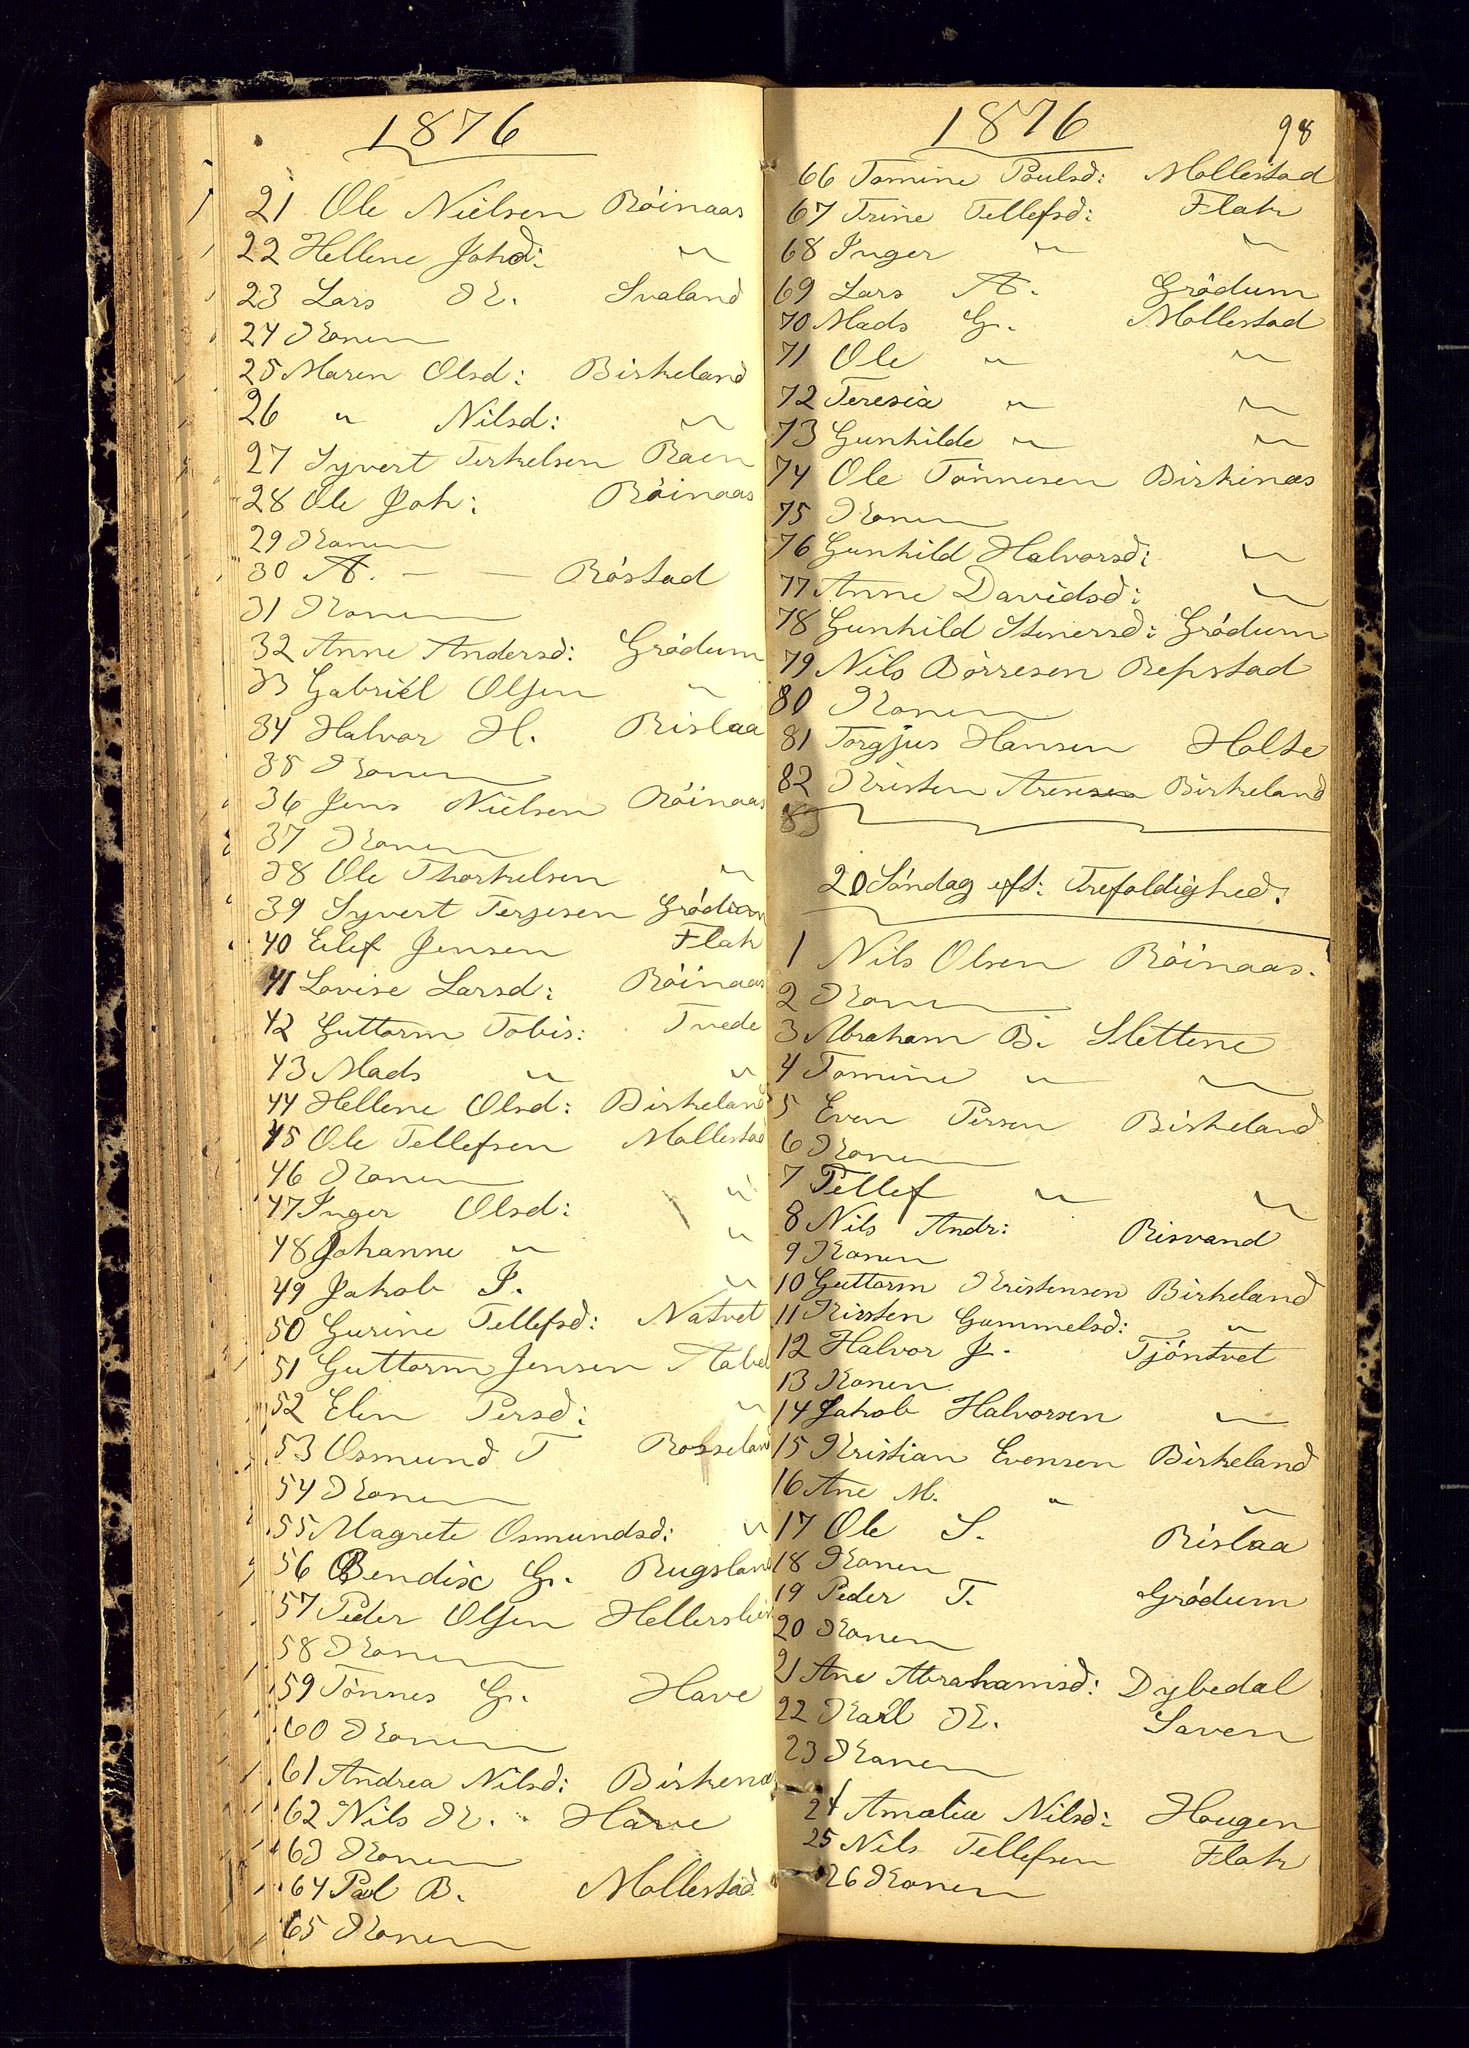 1876
21 Ole Nielsen Röinaas
22 Hellene Johd: "
23 Lars K. Svaland
24 Konen
25 Maren Olsd: Birkeland
26 " Nilsd: "
27 Syvert Terkelsen Raen
28 Ole Joh: Röinaas
29 Konen
30 A. — — Röstad
31 Konen
32 Anne Andersd: Grödum
33 Gabriel Olsen "
34 Halvor H. Rislaa
35 Konen
36 Jens Nielsen Röinaas
37 Konen
38 Ole Thorkelsen "
39 Syvert Terjesen Grödum
40 Eilef Jensen Flak
41 Lovise Larsd: Röinaas
42 Guttorm Tobis: Tvede
43 Mads " "
44 Hellene Olsd: Birkeland
45 Ole Tellefsen Mollestad
46 Konen
47 Inger Olsd: "
48 Johanne " "
49 Jakob J. "
50 Gurine Tellefsd: Natvet
51 Guttorm Jensen Aabel
52 Elen Persd: "
53 Osmund T Rosseland
54 Konen
55 Magrete Osmundsd: "
56 Bendix G. Rugsland
57 Peder Olsen
58 Konen
59 Tönnes G. Have
60 Konen
61 Andrea Nilsd: Birkenæs
62 Nils K. Have
63 Konen
64 Paul B. Mollestad
65 Konen
1876 98
66 Tomine Poulsd: Mollestad
67 Trine Tellefsd: Flak
68 Inger " "
69 Lars A. Grödum
70 Mads G. Mollestad
71 Ole " "
72 Teresia " "
73 Gunhilde " "
74 Ole Tönnesen Birkinæs
75 Konen
76 Gunhild Halvorsd: "
77 Anne Davidsd: "
78 Gunhild Stenersd: Grödum
79 Nils Börresen Repstad
80 Konen
81 Torgjus Hansen Holte
82 Kristen Aresen Birkeland
83
20 Söndag eft: Trefoldighed.
1 Nils Olsen Röinaas.
2 Konen
3 Abraham B. Slettene
4 Tomine " "
5 Even Persen Birkeland
6 Konen
7 Tellef " "
8 Nils Andr: Risvand
9 Konen
10 Guttorm Kristensen Birkeland
11 Kirsten Gummelsd: "
12 Halvor J. Tjöntvet
13 Konen
14 Jakob Halvorsen "
15 Kristian Evensen Birkeland
16 Ane M. " "
17 Ole S. Rislaa
18 Konen
19 Peder T. Grödum
20 Konen
21 Ane Abrahamsd: Dybedal
22 Karl K. Saven
23 Konen
24 Amalia Nilsd: Hougen
25 Nils Tellefsen Flak
26 Konen